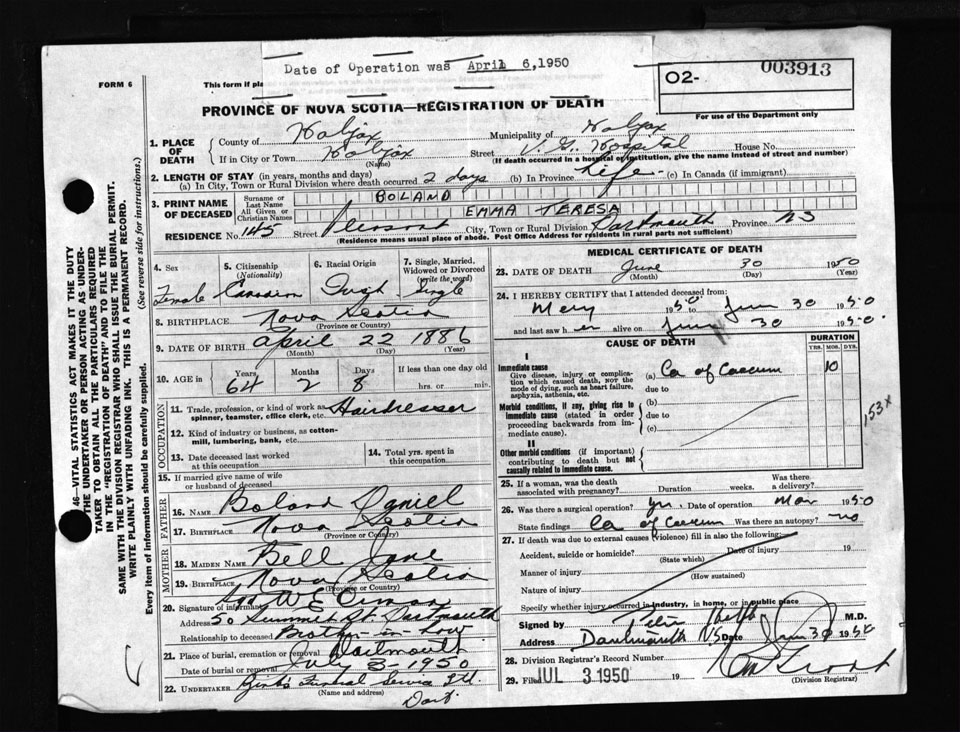 Date of Operation was April 6,1950
FORM 6
This form if pla
O2- 003913
For use of the Department only
PROVINCE OF NOVA SCOTIA—REGISTRATION OF DEATH
1. PLACE OF DEATH
County of Halifax Municipality of Halifax
If in City or Town Halifax Street V. G. Hospital House No.
(Name) (If death occurred in a hospital or institution, give the name instead of street and number)
2. LENGTH OF STAY (in years, months and days)
(a) In City, Town or Rural Division where death occurred 2 days (b) In Province Life (c) In Canada (if immigrant)
3. PRINT NAME OF DECEASED
Surname or Last Name BOLAND
All Given or Christian Names EMMA TERESA
RESIDENCE No. 145 Street Pleasant City, Town or Rural Division Dartmouth Province NS
(Residence means usual place of abode. Post Office Address for residents in rural parts not sufficient)
4. Sex Female
5. Citizenship (Nationality) Canadian
6. Racial Origin
7. Single, Married, Widowed or Divorced (write the word) Single
8. BIRTHPLACE Nova Scotia
(Province or Country)
9. DATE OF BIRTH April 22 1886
(Month) (Day) (Year)
10. AGE in Years Months Days If less than one day old
64 2 8 hrs. or min.
OCCUPATION
11. Trade, profession, or kind of work as spinner, teamster, office clerk, etc. Hairdresser
12. Kind of industry or business, as cotton-mill, lumbering, bank, etc.
13. Date deceased last worked at this occupation
14. Total yrs. spent in this occupation
15. If married give name of wife or husband of deceased
FATHER
16. NAME Boland Daniel
17. BIRTHPLACE Nova Scotia
(Province or Country)
MOTHER
18. MAIDEN NAME Bell Jane
19. BIRTHPLACE Nova Scotia
(Province or Country)
20. Signature of informant
Address 50 Summer St. Dartmouth
Relationship to deceased Brother-in-Law
21. Place of burial, cremation or removal Dartmouth
Date of burial or removal July 3-1950
22. UNDERTAKER Zink's Funeral Service Ltd.
(Name and address)
Dart
MEDICAL CERTIFICATE OF DEATH
23. DATE OF DEATH June 30 1950
(Month) (Day) (Year)
24. I HEREBY CERTIFY that I attended deceased from:
1950 to June 30 1950
and last saw her alive on June 30 1950.
CAUSE OF DEATH
DURATION
YRS. MOS. DYS.
I
Immediate cause
Give disease, injury or complication which caused death, NOT the mode of dying, such as heart failure, asphyxia, asthenia, etc.
(a) Ca of Caecum 10
due to
Morbid conditions, if any, giving rise to immediate cause (stated in order proceeding backwards from immediate cause).
(b)
due to
(c)
II
Other morbid conditions (if important) contributing to death but not causally related to immediate cause.
153x
25. If a woman, was the death associated with pregnancy? Duration weeks. Was there a delivery?
26. Was there a surgical operation? yes. Date of operation Mar 1950
State findings Ca of Caecum Was there an autopsy? no
27. If death was due to external causes (violence) fill in also the following:
Accident, suicide or homicide? Date of injury 19
(State which)
Manner of injury
(How sustained)
Nature of injury
Specify whether injury occurred in industry, in home, or in public place
Signed by M.D.
Address Dartmouth NS Date June 30 1950
28. Division Registrar's Record Number
29. Filed JUL 3 1950 19
(Division Registrar)
46—VITAL STATISTICS ACT MAKES IT THE DUTY
THE UNDERTAKER OR PERSON ACTING AS UNDERTAKER TO OBTAIN ALL THE PARTICULARS REQUIRED
IN THE "REGISTRATION OF DEATH" AND TO FILE THE
SAME WITH THE DIVISION REGISTRAR WHO SHALL ISSUE THE BURIAL PERMIT.
WRITE PLAINLY WITH UNFADING INK. THIS IS A PERMANENT RECORD.
Every item of information should be carefully supplied. (See reverse side for instructions.)